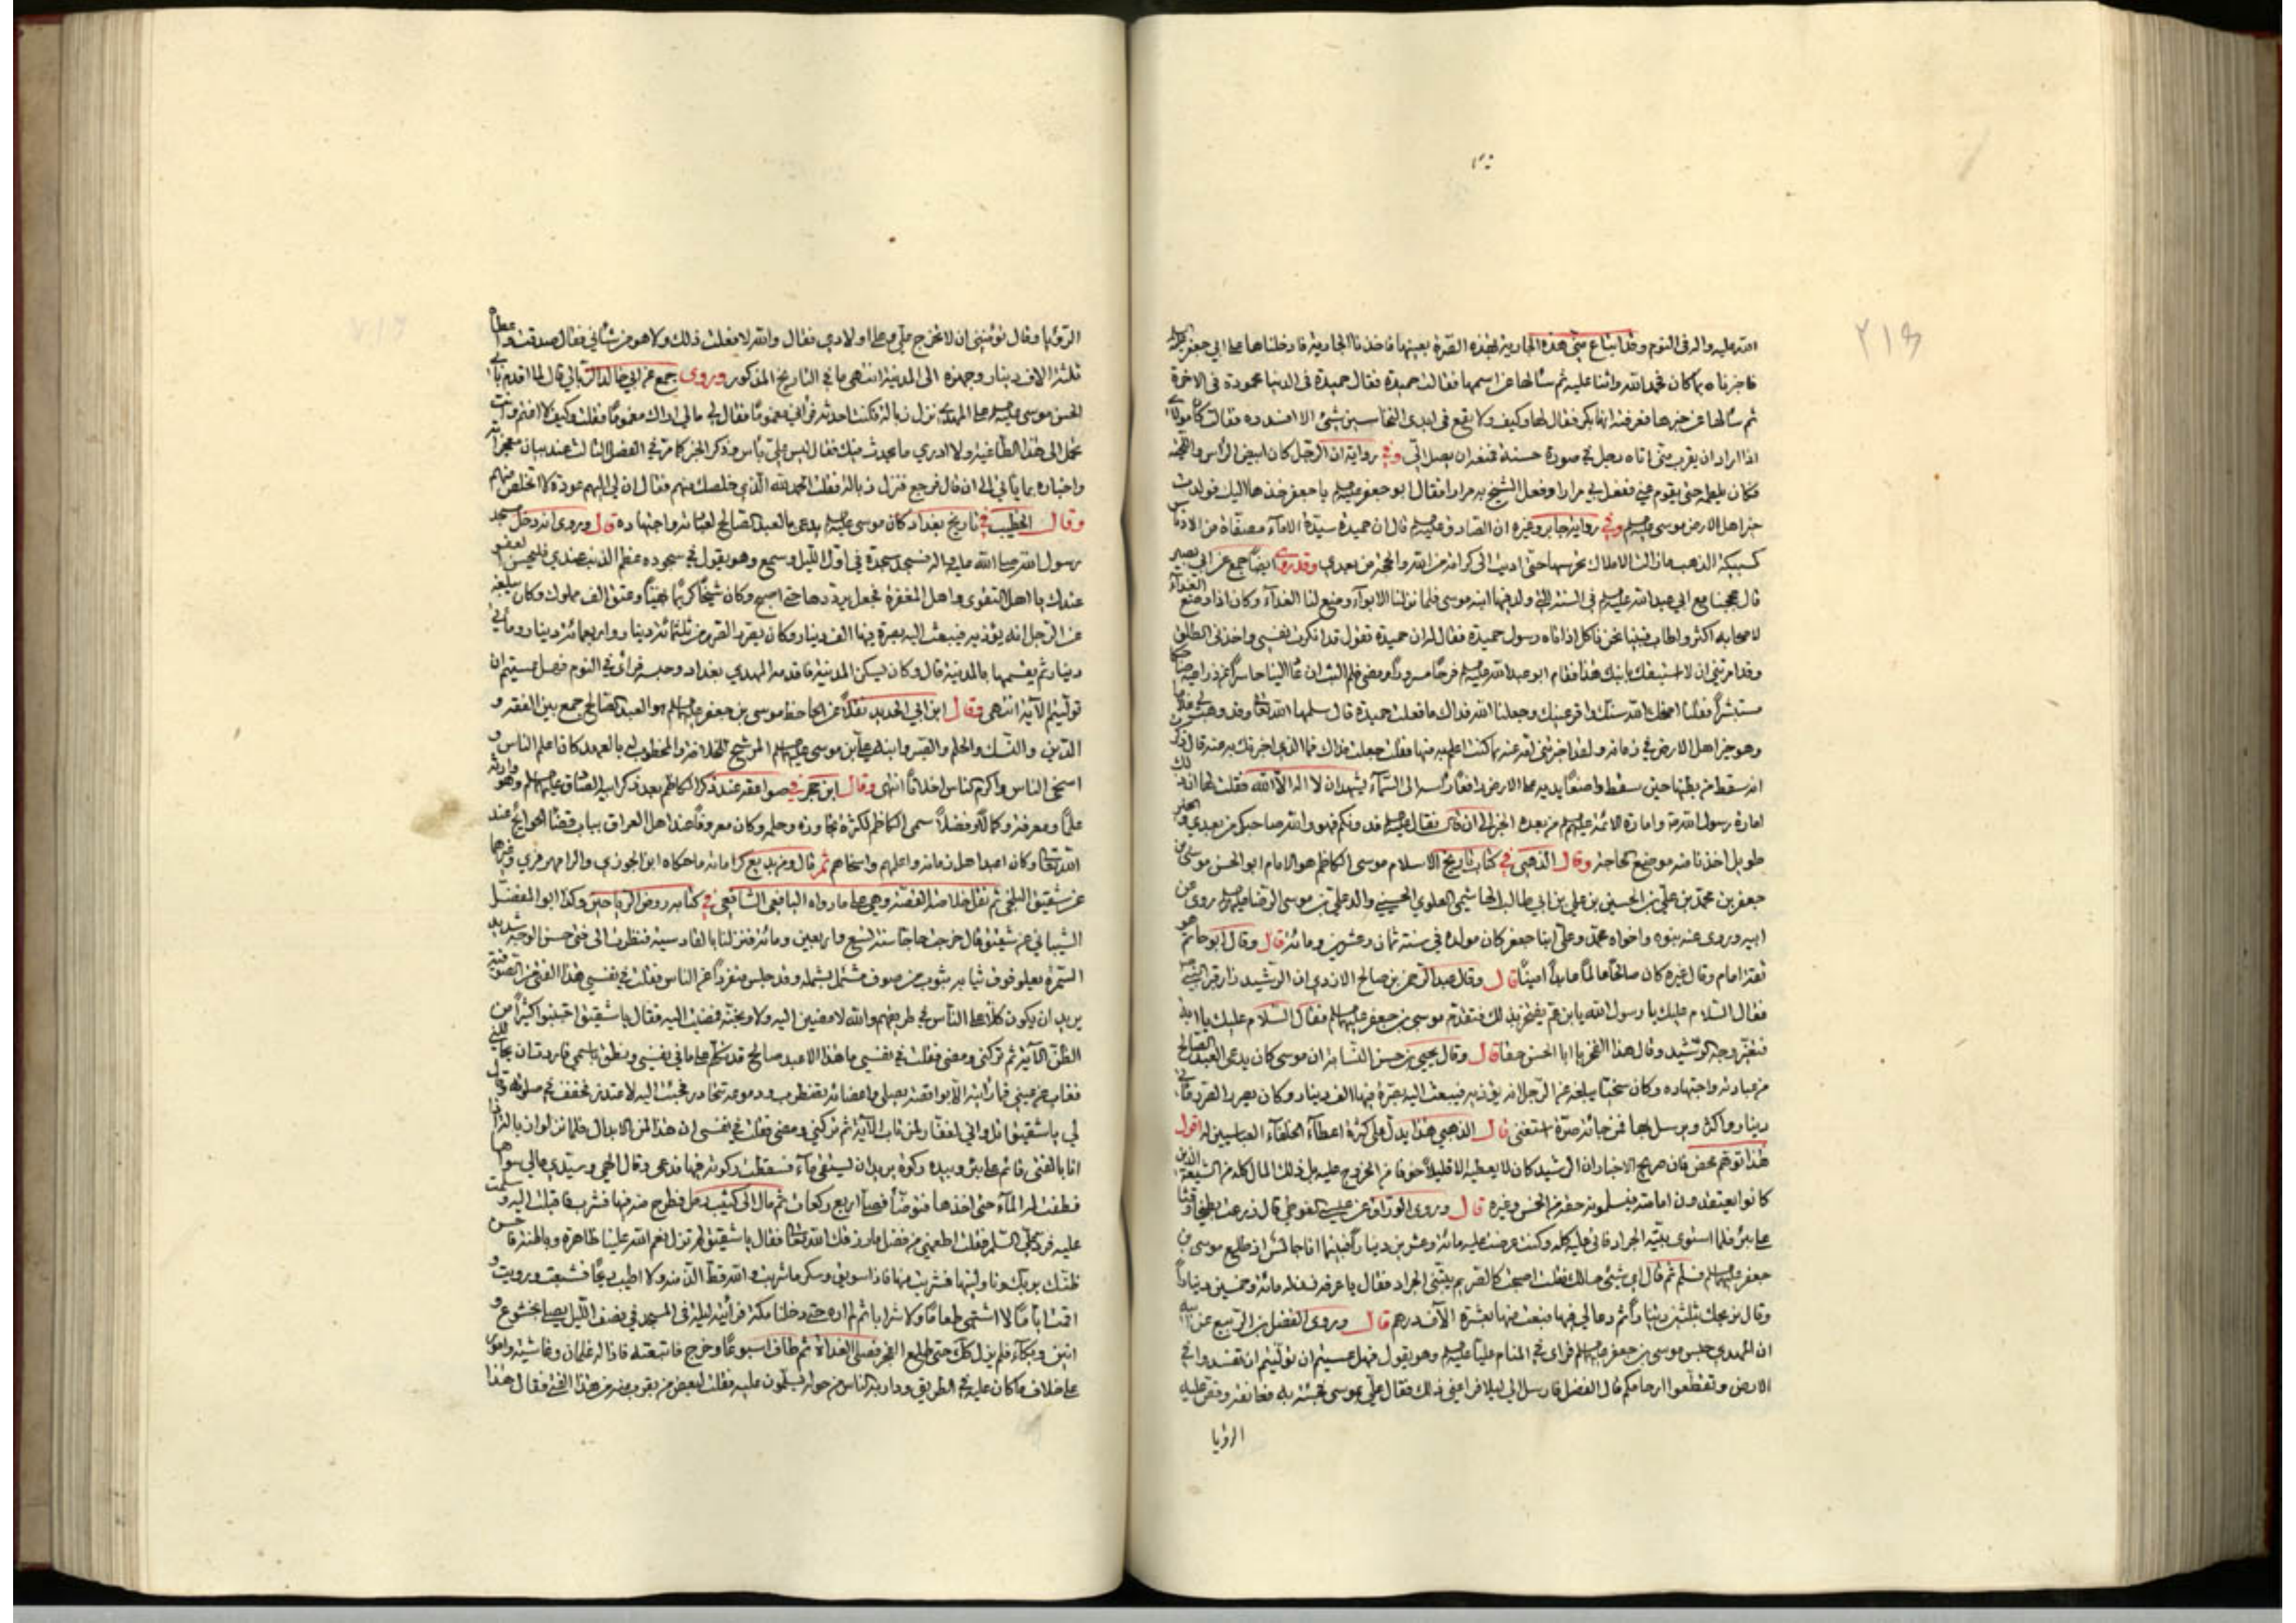 ٢١٤
الله عليه واله فى النوم وقد ابتاع منى هذه الجارية بهذه الصرة بعينها فاخذنا الجارية فادخلناها على ابي جعفر
فاخبرناه بما كان فحمد الله واثنا عليه ثم سألها عن اسمها فقالت حميدة فقال حميدة فى الدنيا محمودة فى الاخرة
ثم سألها عن خبرها فعرفته انها بكر فقال لها وكيف ولا يقع فى ايدى النخاسين شئ الا افسدوه فقالت كان مولاى
اذا اراد ان يقرب منى اتاه رجل في صورة حسنة فمنعه ان يصل الى وفي رواية ان الرجل كان ابيض الرأس واللحية
فكان يلطمه حتى يقوم عنى ففعل بي مرارا وفعل الشيخ به مرارا فقال ابو جعفر يا جعفر خذها اليك فولدت
خير اهل الارض موسى وفي رواية جابر وغيره ان الصادق قال ان حميدة سيدة الاماء مصفاة من الادناس
كسبيكة الذهب ما زالت الاملاك تحرسها حتى اديت الى كرامة من الله والحجة من بعدي وقد روى ايضا جمع عن ابي بصير
قال حججنا مع ابي عبد الله فى السنة التي ولد فيها ابنه موسى فلما نزلنا الابواء وضع لنا الغداء وكان اذا وضع الغداء
لاصحابه اكثر واطاب فبينا نحن نأكل اذ اتاه رسول حميدة فقال له ان حميدة تقول قد انكرت نفسي واخذنى الطلق
وقد امرتني ان لا استبقك بابنك هذا فقام ابو عبد الله فرحا مسرورا ومضى فلم يلبث ان عاد الينا حاسرا عن ذراعيه ضاحكا
مستبشرا فقلنا اضحك الله سنك واقر عينك وجعلنا الله فداك ما فعلت حميدة قال سلمها الله تعالى وقد وهب لي منها
وهو خير اهل الارض في زمانه ولقد اخبرتني امه عنه بما كنت اعلم به منها فقلت جعلت فداك فما الذي اخبرتك به عنه قال ذكرت
انه سقط من بطنها حين سقط واضعا يديه على الارض رافعا رأسه الى السماء يشهد ان لا اله الا الله فقلت لها ان ذلك
امارة رسول الله وامارة الائمة من بعده الخبر الى ان قال فقال قدونكم فهو والله صاحبكم من بعدي والخبر
طويل اخذنا منه موضع الحاجة وقال الذهبي في كتاب تاريخ الاسلام موسى الكاظم هو الامام ابو الحسن موسى بن
جعفر بن محمد بن علي بن الحسين بن علي بن ابي طالب الهاشمي العلوي الحسيني والد علي بن موسى الرضا روى عن
ابيه وروى عنه بنوه واخواه محمد وعلي ابنا جعفر كان مولده في سنة ثمان وعشرين ومائة قال وقال ابو حاتم هو
ثقة امام وقال غيره كان صالحا عالما عابدا امينا قال وقال عبد الرحمن بن صالح الازدي ان الرشيد زار قبر النبي
فقال السلام عليك يا رسول الله يا بن عم يفتخر بذلك فتقدم موسى بن جعفر فقال السلام عليك يا ابه
فتغير وجه الرشيد وقال هذا الفخر يا ابا الحسن حقا قال وقال يحيى بن حسن النسابة ان موسى كان يدعى العبد الصالح
من عبادته واجتهاده وكان سخيا يبلغه عن الرجل انه يؤذيه فيبعث اليه بصرة فيها الف دينار وكان يصرر الصرر مأتي
دينار واكثر ويرسل بها فمن جائته صرة استغنى قال الذهبي هذا يدل على كثرة اعطاء الخلفاء العباسيين له اقول
هذا توهم محض فان صريح الاخبار ان الرشيد كان لا يعطيه الا قليلا خوفا من الخروج عليه بل ذلك المال كله من الشيعة الذين
كانوا يعتقدون امامته فيسلمونه حقه من الخمس وغيره قال وروى الوراق عن عيسى القوطي قال زرعت بطيخا وقثا
على بئر فلما استوى بيته الجراد فاتى عليه كله وكنت غرمت عليه مائة وعشرين دينارا فبينما انا جالس اذ طلع موسى بن
جعفر فسلم ثم قال اي شئ حالك فقلت اصبحت كالصريم بيتني الجراد فقال يا عرفه زن له مائة وخمسين دينارا
وقال نربحك بثلثين دينارا ثم دعا لي فيها فبعت منها بعشرة الآف درهم قال وروى الفضل بن الربيع عن ابيه
ان المهدي حبس موسى بن جعفر فرأى في المنام عليا وهو يقول فهل عسيتم ان توليتم ان تفسدوا في
الارض وتقطعوا ارحامكم قال الفضل فارسل الي ليلا فراعني ذلك فقال علي بموسى فجئته به فعانقه وقص عليه
الرؤيا
الرؤيا وقال تؤمنني ان لا تخرج علي وعلى اولادي فقال والله لا فعلت ذلك ولا هو من شأني فقال صدقت واعطاه
ثلثة الاف دينار وجهزه الى المدينة انتهى ما في التاريخ المذكور وروى جمع عن ابي خالد الزبالي قال لما اقدم بابي
الحسن موسى على المهدي نزل زبالة فكنت احدثه فرآني مغموما فقال لي ما لي اراك مغموما فقلت وكيف لا اغتم وانت
تحمل الى هذا الطاغية ولا ادري ما يحدث فيك فقال ليس علي بأس وذكر الخبر كما مر في الفصل الثالث عند بيان معجزاته
واخباره بما يأتي الى ان قال فرجع فنزل زبالة فقلت الحمد لله الذي خلصك منهم فقال ان لي اليهم عودة لا اتخلص منهم
وقال الخطيب في تاريخ بغداد كان موسى يدعى بالعبد الصالح لعبادته واجتهاده قال وروى انه دخل مسجد
رسول الله صلى الله عليه واله فسجد سجدة في اول الليل وسمع وهو يقول في سجوده عظم الذنب عندي فليحسن العفو
عندك يا اهل التقوى واهل المغفرة فجعل يرددها حتى اصبح وكان شيخا كريما سخيا وعتق الف مملوك وكان يبلغه
عن الرجل انه يؤذيه فيبعث اليه بصرة فيها الف دينار وكان يصرر الصرر من ثلثمائة دينار واربعمائة دينار ومأتي
دينار ثم يقسمها بالمدينة قال وكان يسكن المدينة فاقدمه المهدي بغداد وحبسه فرأى في النوم فهل عسيتم ان
توليتم الآية انتهى وقال ابن ابي الحديد نقلا عن الجاحظ موسى بن جعفر هو العبد الصالح جمع بين الفقه و
الدين والنسك والحلم والصبر وابنه علي بن موسى المرشح للخلافة والمخطوب له بالعهد كان اعلم الناس و
اسخى الناس واكرم الناس اخلاقا انتهى وقال ابن حجر في صواعقه عند ذكر الكاظم بعد ذكر ابيه الصادق وهو وارثه
علما ومعرفة وكمالا وفضلا سمى الكاظم لكثرة تجاوزه وحلمه وكان معروفا عند اهل العراق بباب قضاء الحوائج عند
الله تعالى وكان اعبد اهل زمانه واعلمهم واسخاهم ثم قال ومن بديع كراماته ما حكاه ابن الجوزي والرامهرمزي وغيرهما
عن شقيق البلخي ثم نقل خلاصة القصة وهي على ما رواه اليافعي الشافعي في كتابه روض الرياحين وكذا ابو المفضل
الشيباني عن شقيق قال خرجت حاجا سنة تسع واربعين ومائة فنزلنا بالقادسية فنظرت الى فتى حسن الوجه شديد
السمرة يعلو فوق ثيابه بثوب من صوف مشتمل بشملة وقد جلس منفردا عن الناس فقلت في نفسي هذا الفتى من الصوفية
يريد ان يكون كلا على الناس في طريقهم والله لامضين اليه ولاوبخنه فمضيت اليه فقال يا شقيق اجتنبوا كثيرا من
الظن الآية ثم تركني ومضى فقلت في نفسي ما هذا الا عبد صالح قد تكلم على ما في نفسي ونطق باسمي فاردت ان يحاللني
فغاب عن عيني فما رأيته الا بواقصة يصلي واعضائه تضطرب ودموعه تتحادر فجئت اليه لاعتذر فخفف في صلوته وقال
لي يا شقيق اتل واني لغفار لمن تاب الآية ثم تركني ومضى فقلت في نفسي ان هذا لمن الابدال فلما نزلوا زبالة اذا
انا بالفتى قائم على بئر وبيده ركوة يريد ان يستقي ماء فسقطت ركوته فيها فدعى وقال الهي وسيدي مالي سواها
فطفت له الماء حتى اخذها فتوضأ فصلى اربع ركعات ثم مال الى كثيب رمل فطرح منه فيها فشرب فاقبلت اليه وسلمت
عليه فرد علي السلام فقلت اطعمني من فضل ما رزقك الله تعالى فقال يا شقيق لم تزل نعم الله علينا ظاهرة وباطنة فاحسن
ظنك بربك وناولنيها فشربت منها فاذا سويق وسكر ما شربت والله قط الذ منه ولا اطيب ريحا فشبعت ورويت و
اقمت اياما لا اشتهي طعاما ولا شرابا ثم لم اره حتى دخلنا مكة فرأيته ليلة فى المسجد في نصف الليل يصلي بخشوع و
انين وبكاء فلم يزل كك حتى طلع الفجر فصلى الغداة ثم طاف اسبوعا وخرج فاتبعته فاذا له غلمان وغاشية واموال
على خلاف ما كان عليه في الطريق ودار به الناس من حوله يسلمون عليه فقلت لبعض من يقرب منه من هذا الفتى فقال هذا